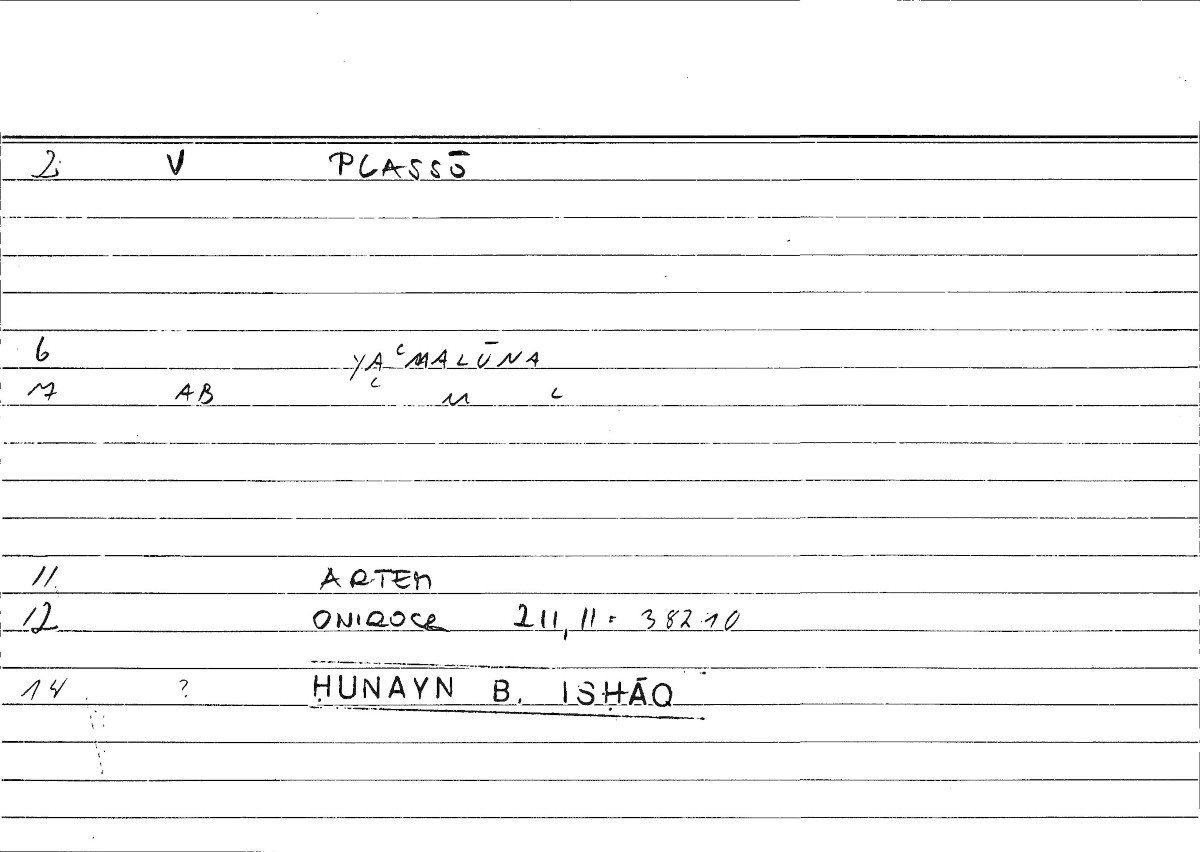 2 V PLASSŌ
6 YAʿMALŪNA
7 AB
11 ARTEM
12 ONIROCR 211,11 = 382.10
14 ? ḤUNAYN B. ISḤĀQ